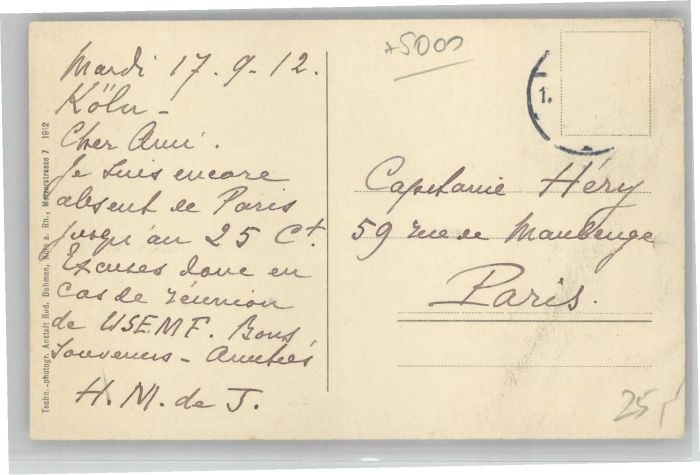 +5000
Mardi 17.9-12.
Köln -
Cher Ami.
Je suis encore
absent de Paris
jusqu'au 25 Ct.
Excuses donc en
cas de réunion
de USEMF. Bons
souvenirs - Amitiés
H. M. de J.
1.
Capitaine Héry
59 rue de Maubeuge
Paris.
25
Techn.-photogr. Anstalt Rud. Duhmen, Köln a. Rh., Metzerstrasse 7 1912